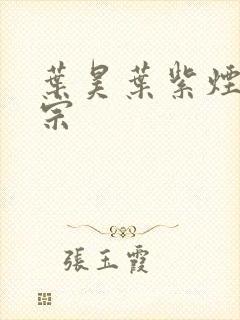 葉昊葉紫煙
宗
張玉霞